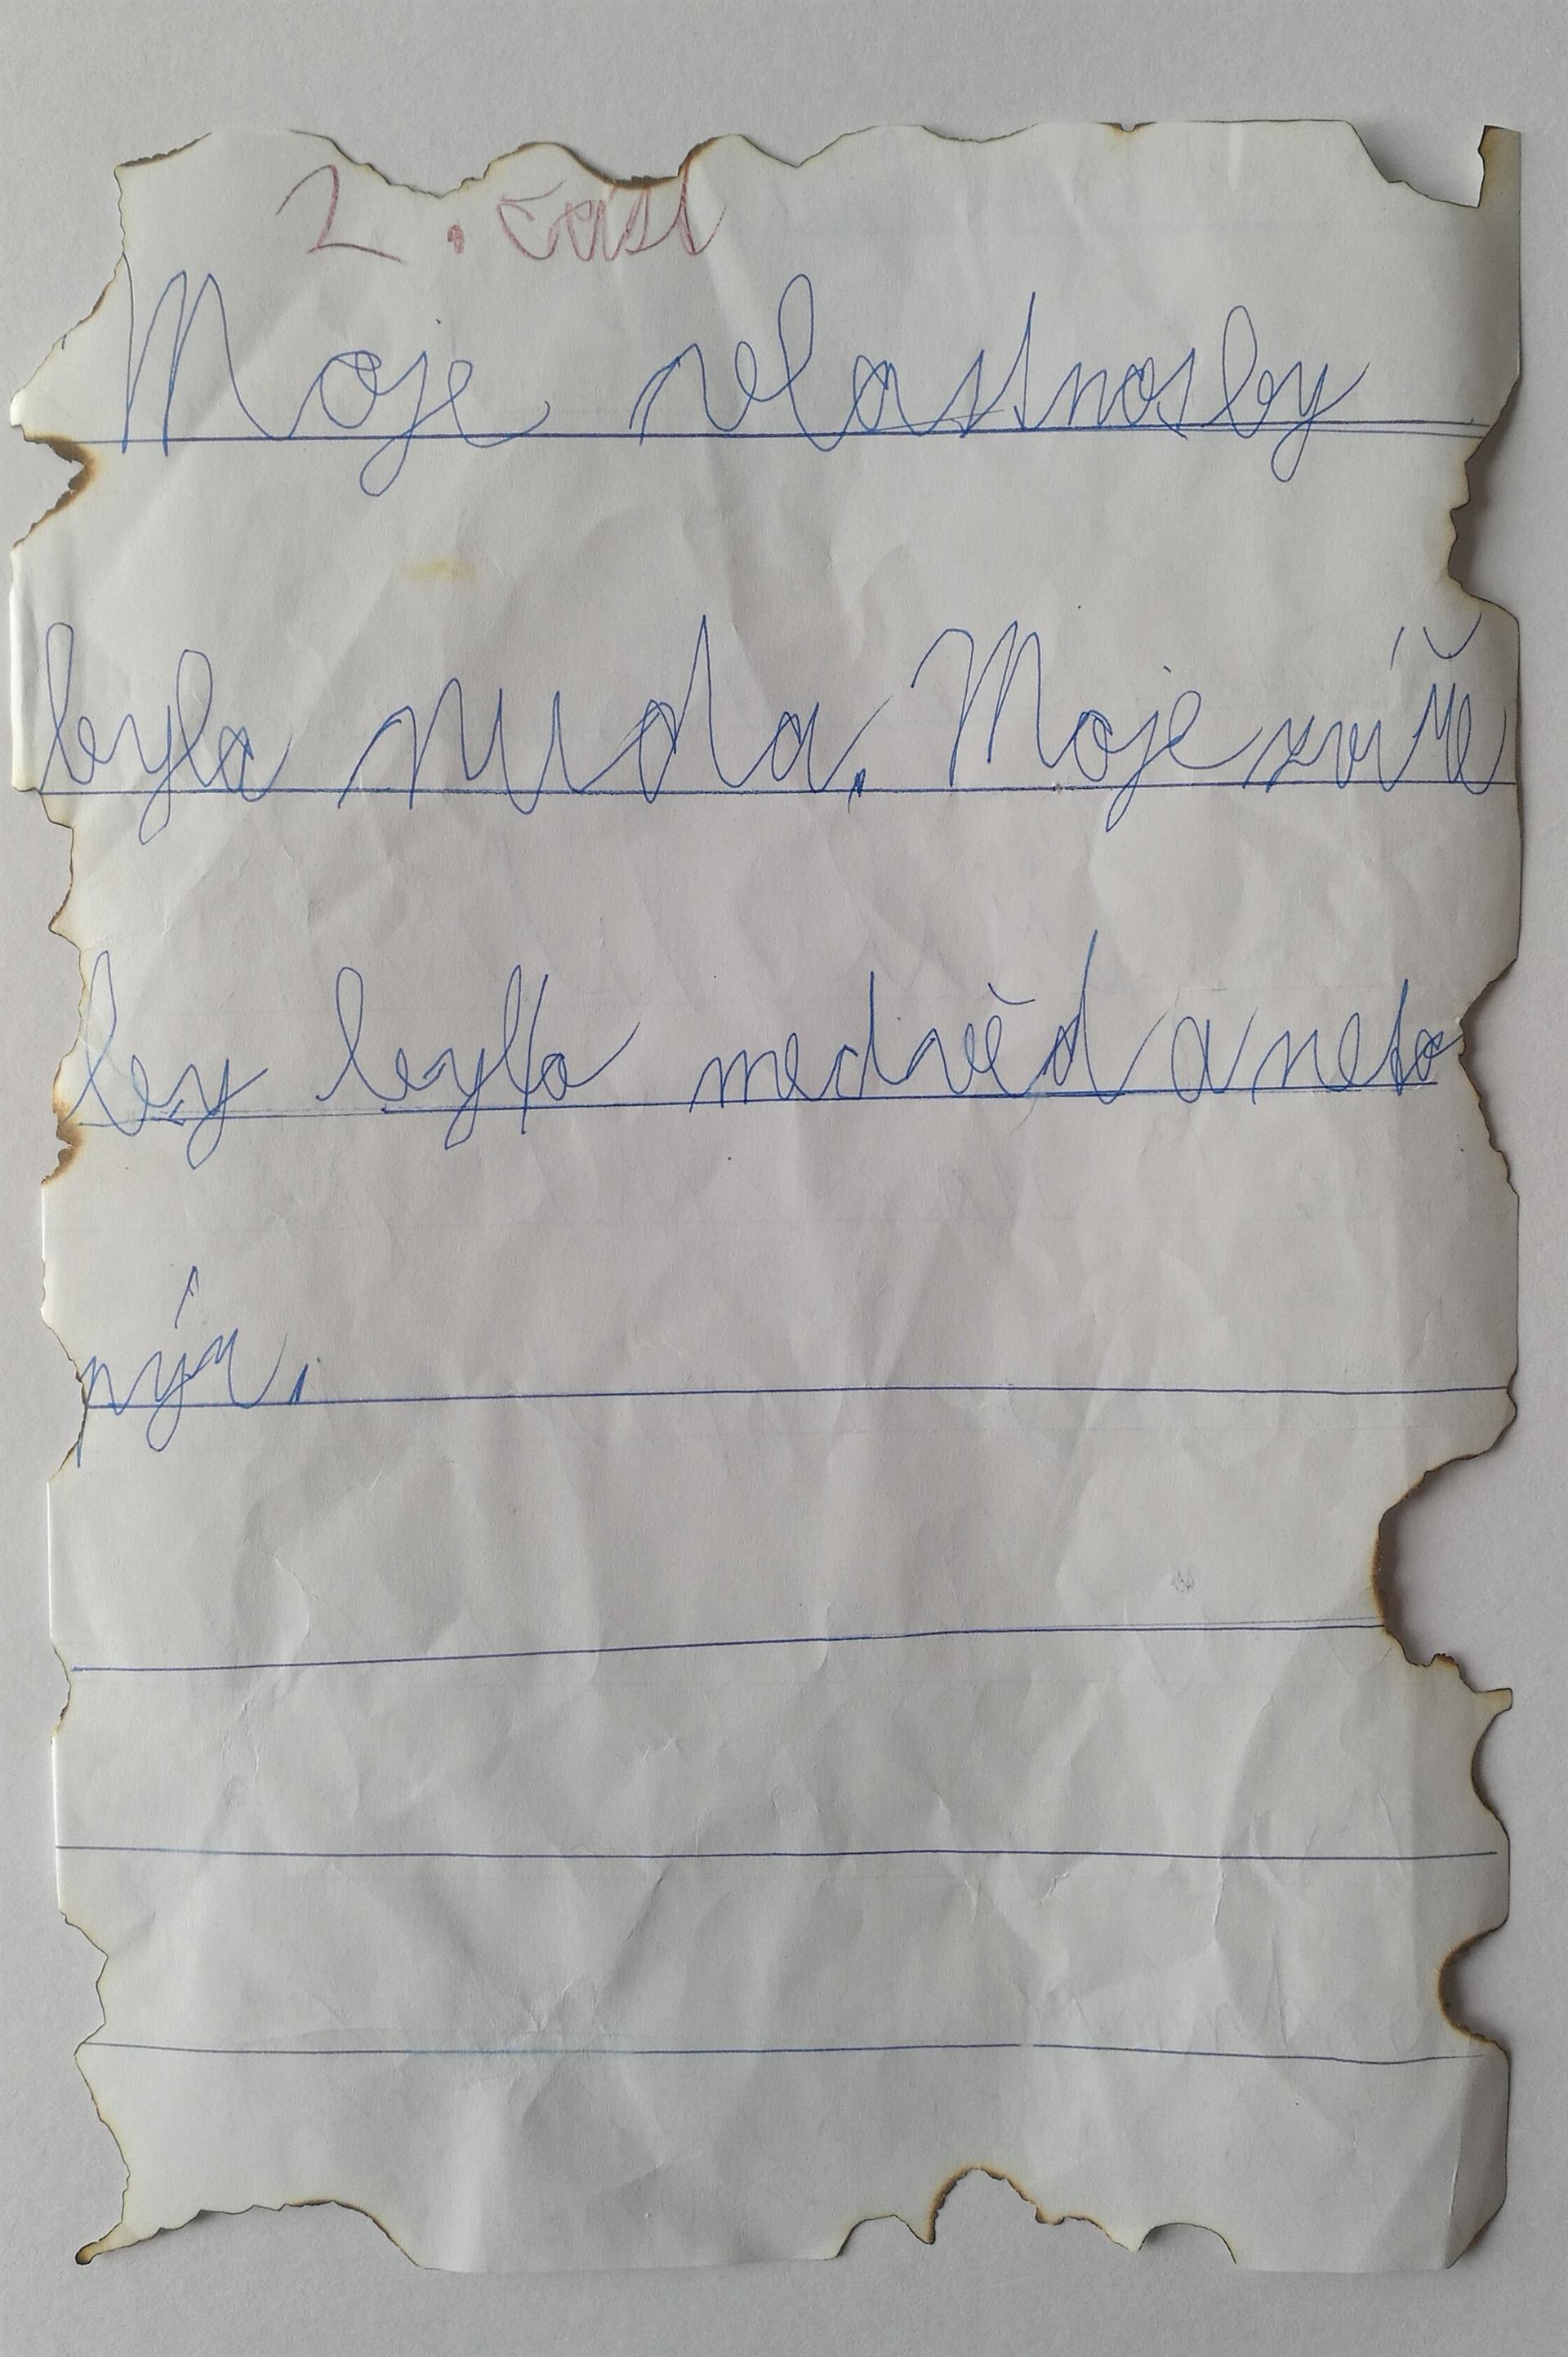 2. část
Moje vlastnosby
byla nuda. Moje zvíře
by bylo medvěd a nebo
výr.